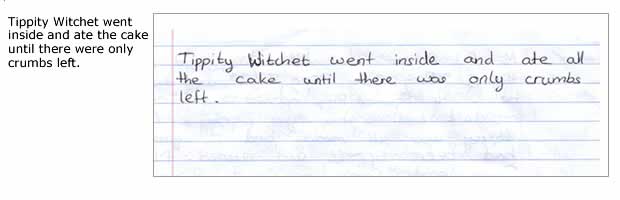 Tippity Witchet went
inside and ate the cake
until there were only
crumbs left.
Tippity Witchet went inside and ate all
the cake until there was only crumbs
left.